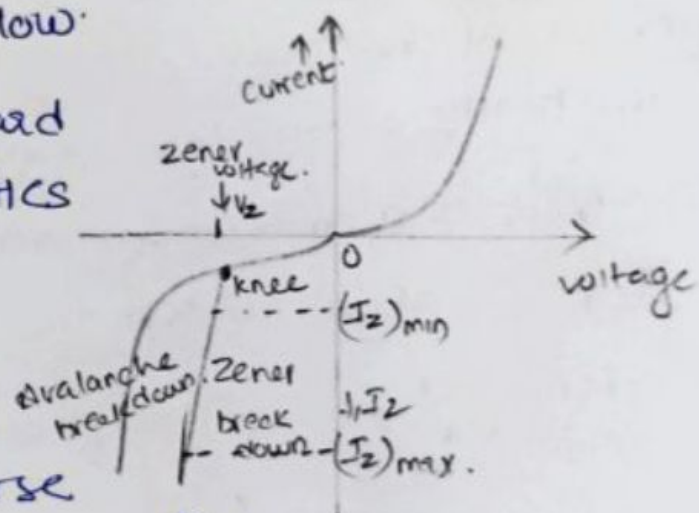 low.
ad
tics
↑↑
Current
Zener
voltage.
↓ Vz
0
voltage
knee
(Iz)min
Avalanche
breakdown.
Zener
break
down
↓, Iz
(Iz)max.
se